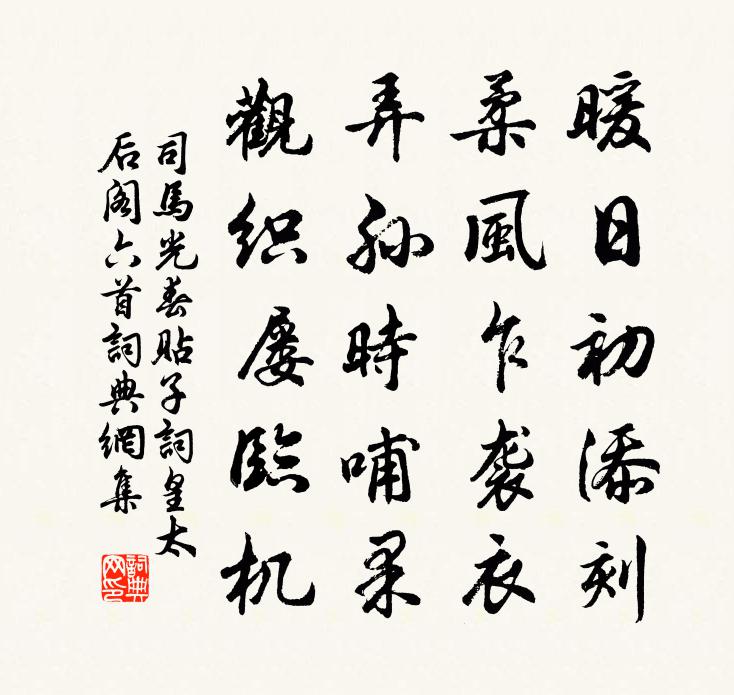 暖日初添刻
柔風乍袭衣
弄孙時哺果
觀织屡臨机
司馬光春貼子詞皇太
后阁六首詞典網集
詞典网印